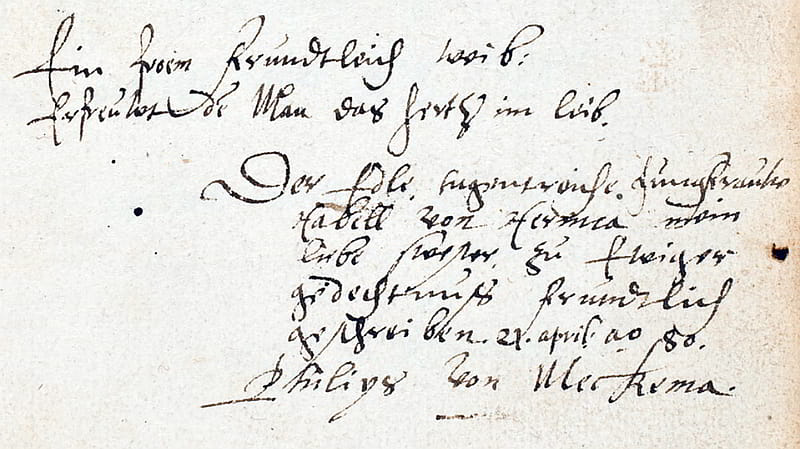 Ein from freundtleich weib:
Erfreuwt de Man das hertz im leib.
Der Edle tugentreiche Junckfrauw
von mein
liebe swester zu Ewiger
gedechtnuss freundtlich
geschreiben. 21. april ao 80.
Philips von Meckema.